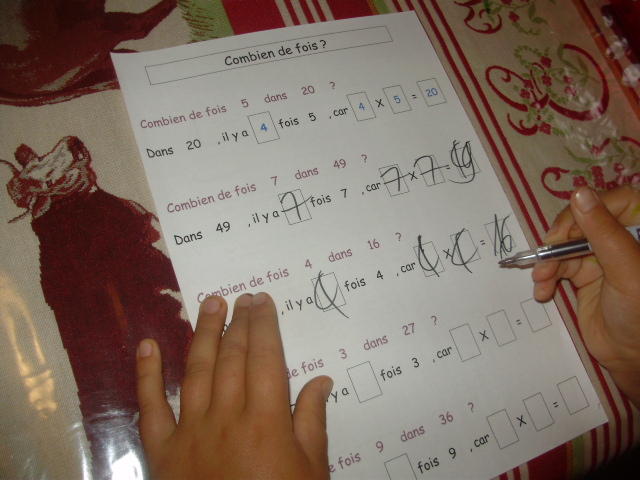 Combien de fois ?
Combien de fois 5 dans 20 ?
Dans 20 , il y a 4 fois 5 , car 4 X 5 = 20
Combien de fois 7 dans 49 ?
Dans 49 , il y a 7 fois 7 , car 7 X 7 = 49
Combien de fois 4 dans 16 ?
, il y a 4 fois 4 , car 4 X 4 = 16
de fois 3 dans 27 ?
y a fois 3 , car X =
fois 9 dans 36 ?
fois 9 , car X =